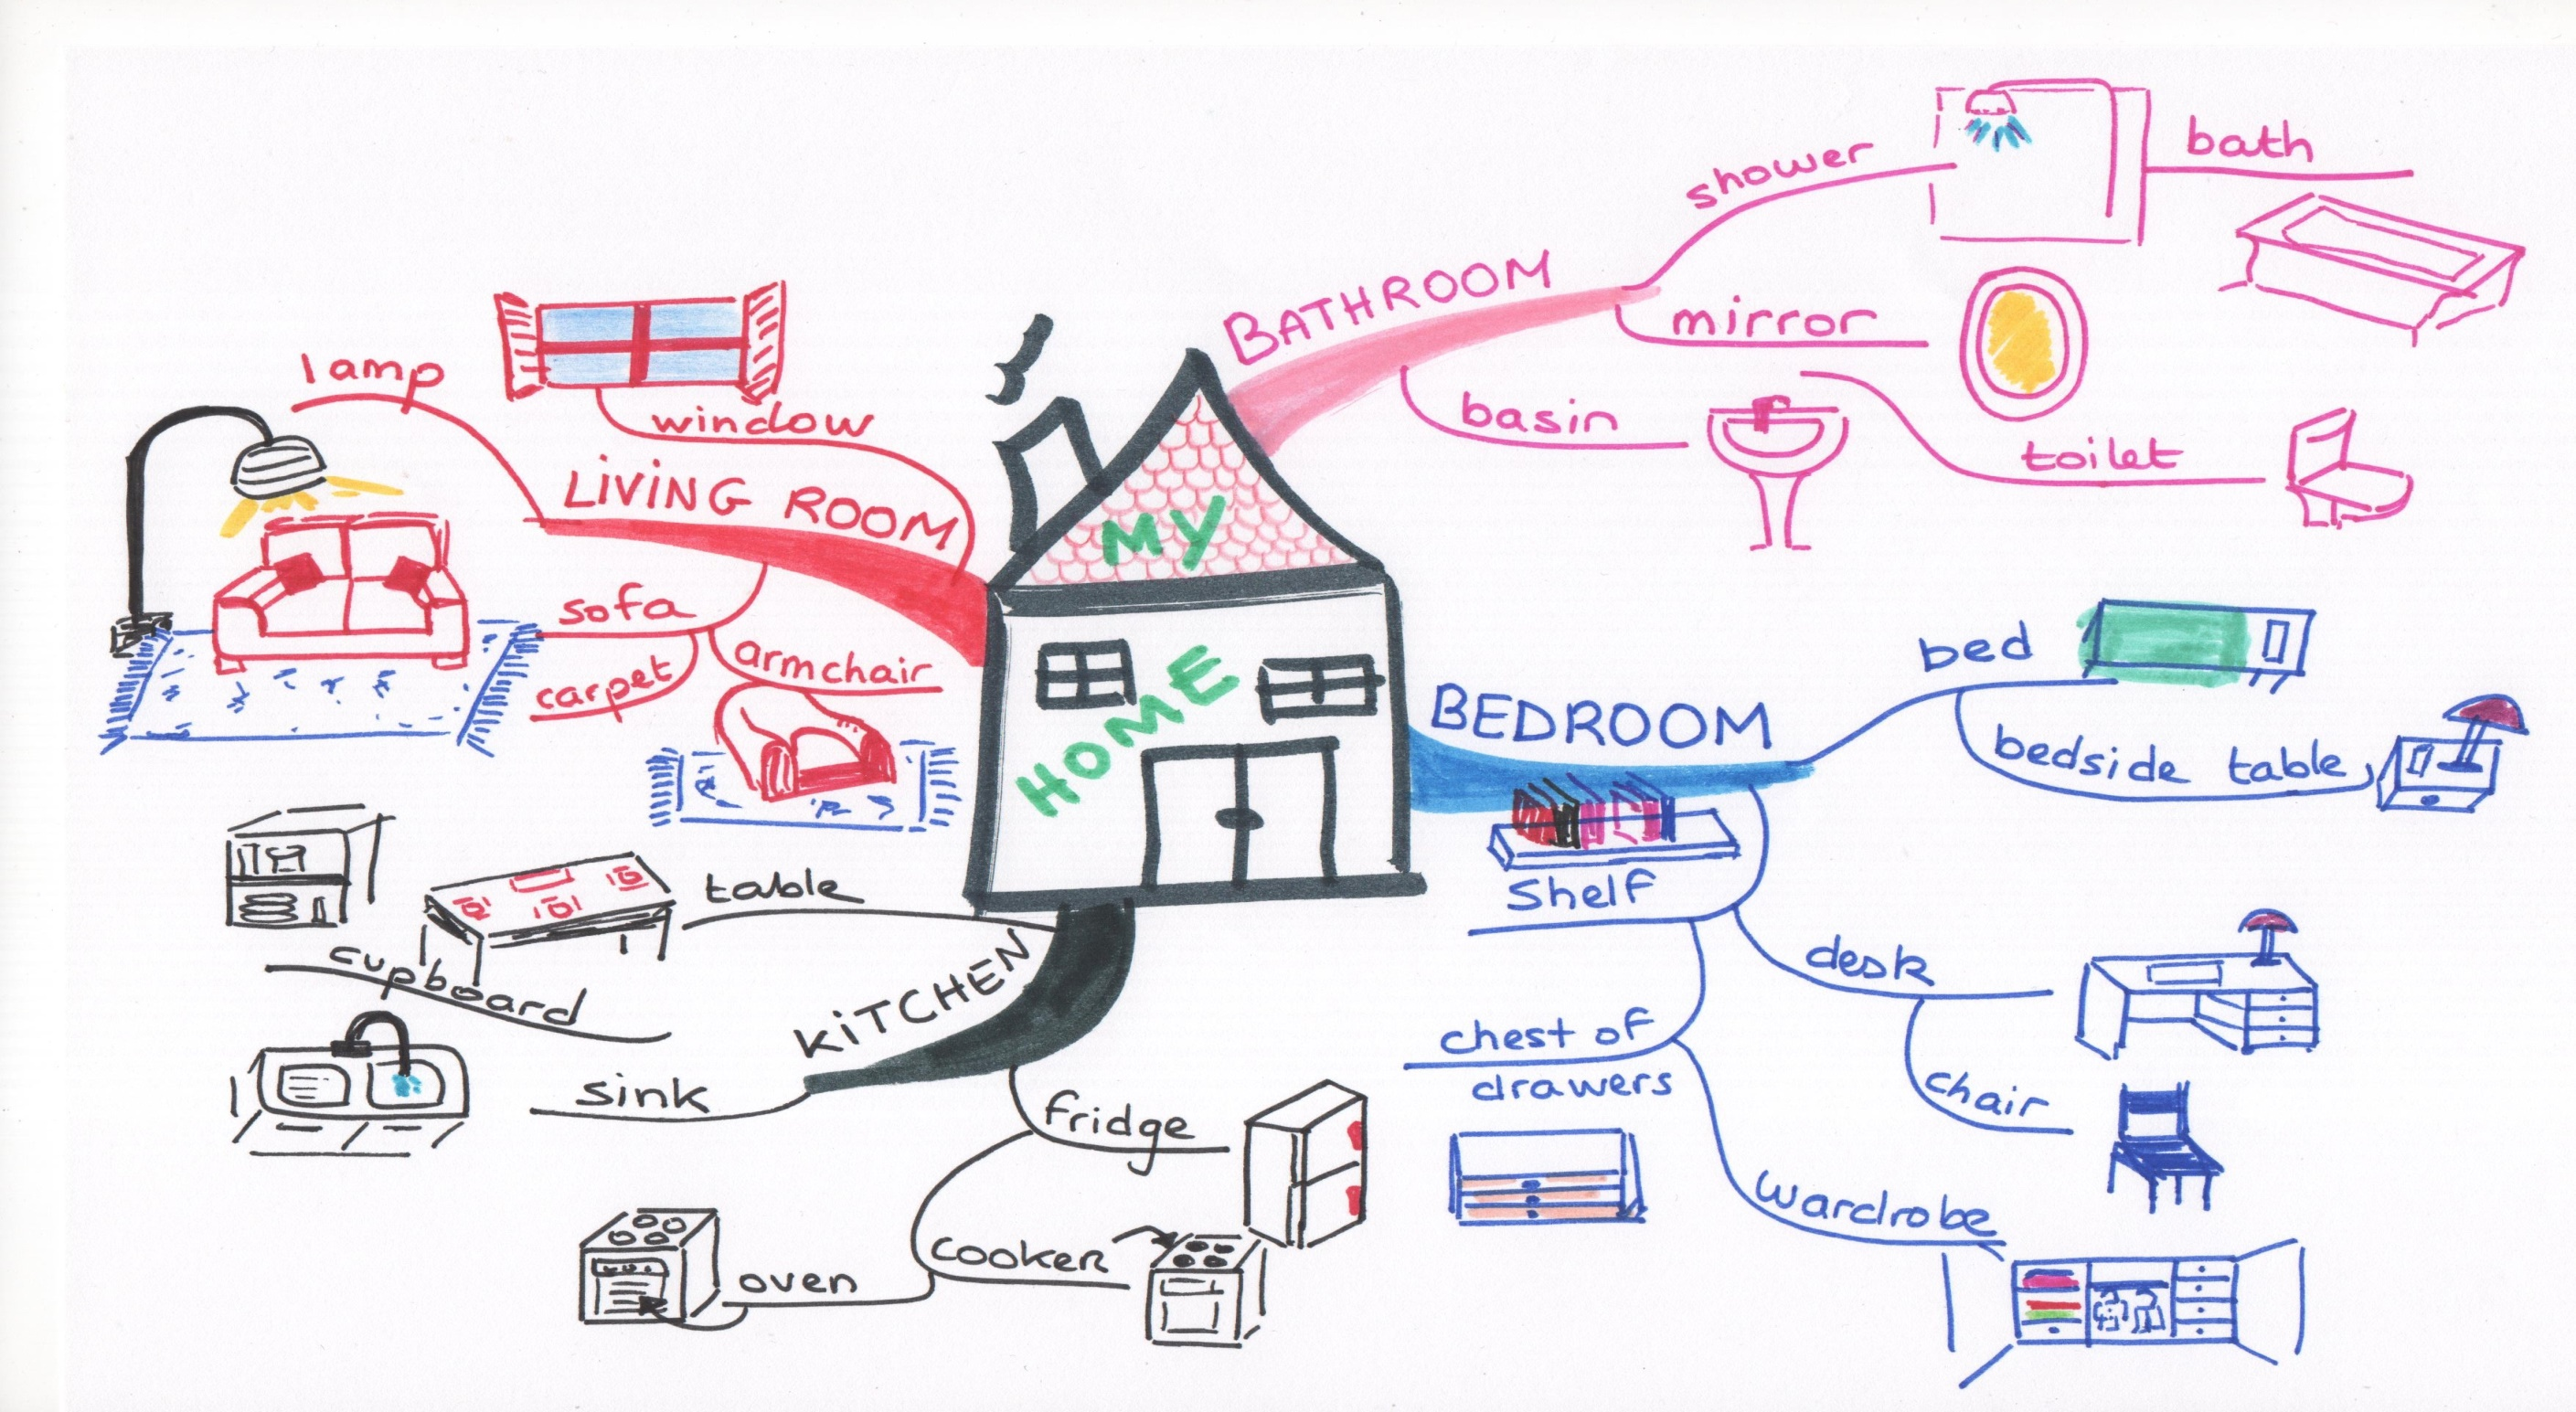 MY
HOME
LiViNG ROOM
lamp
window
sofa
carpet
armchair
BATHROOM
shower
bath
mirror
basin
toilet
BEDROOM
bed
bedside table
Shelf
desk
chair
chest of
drawers
wardrobe
KiTCHEN
table
cupboard
sink
fridge
cooker
oven